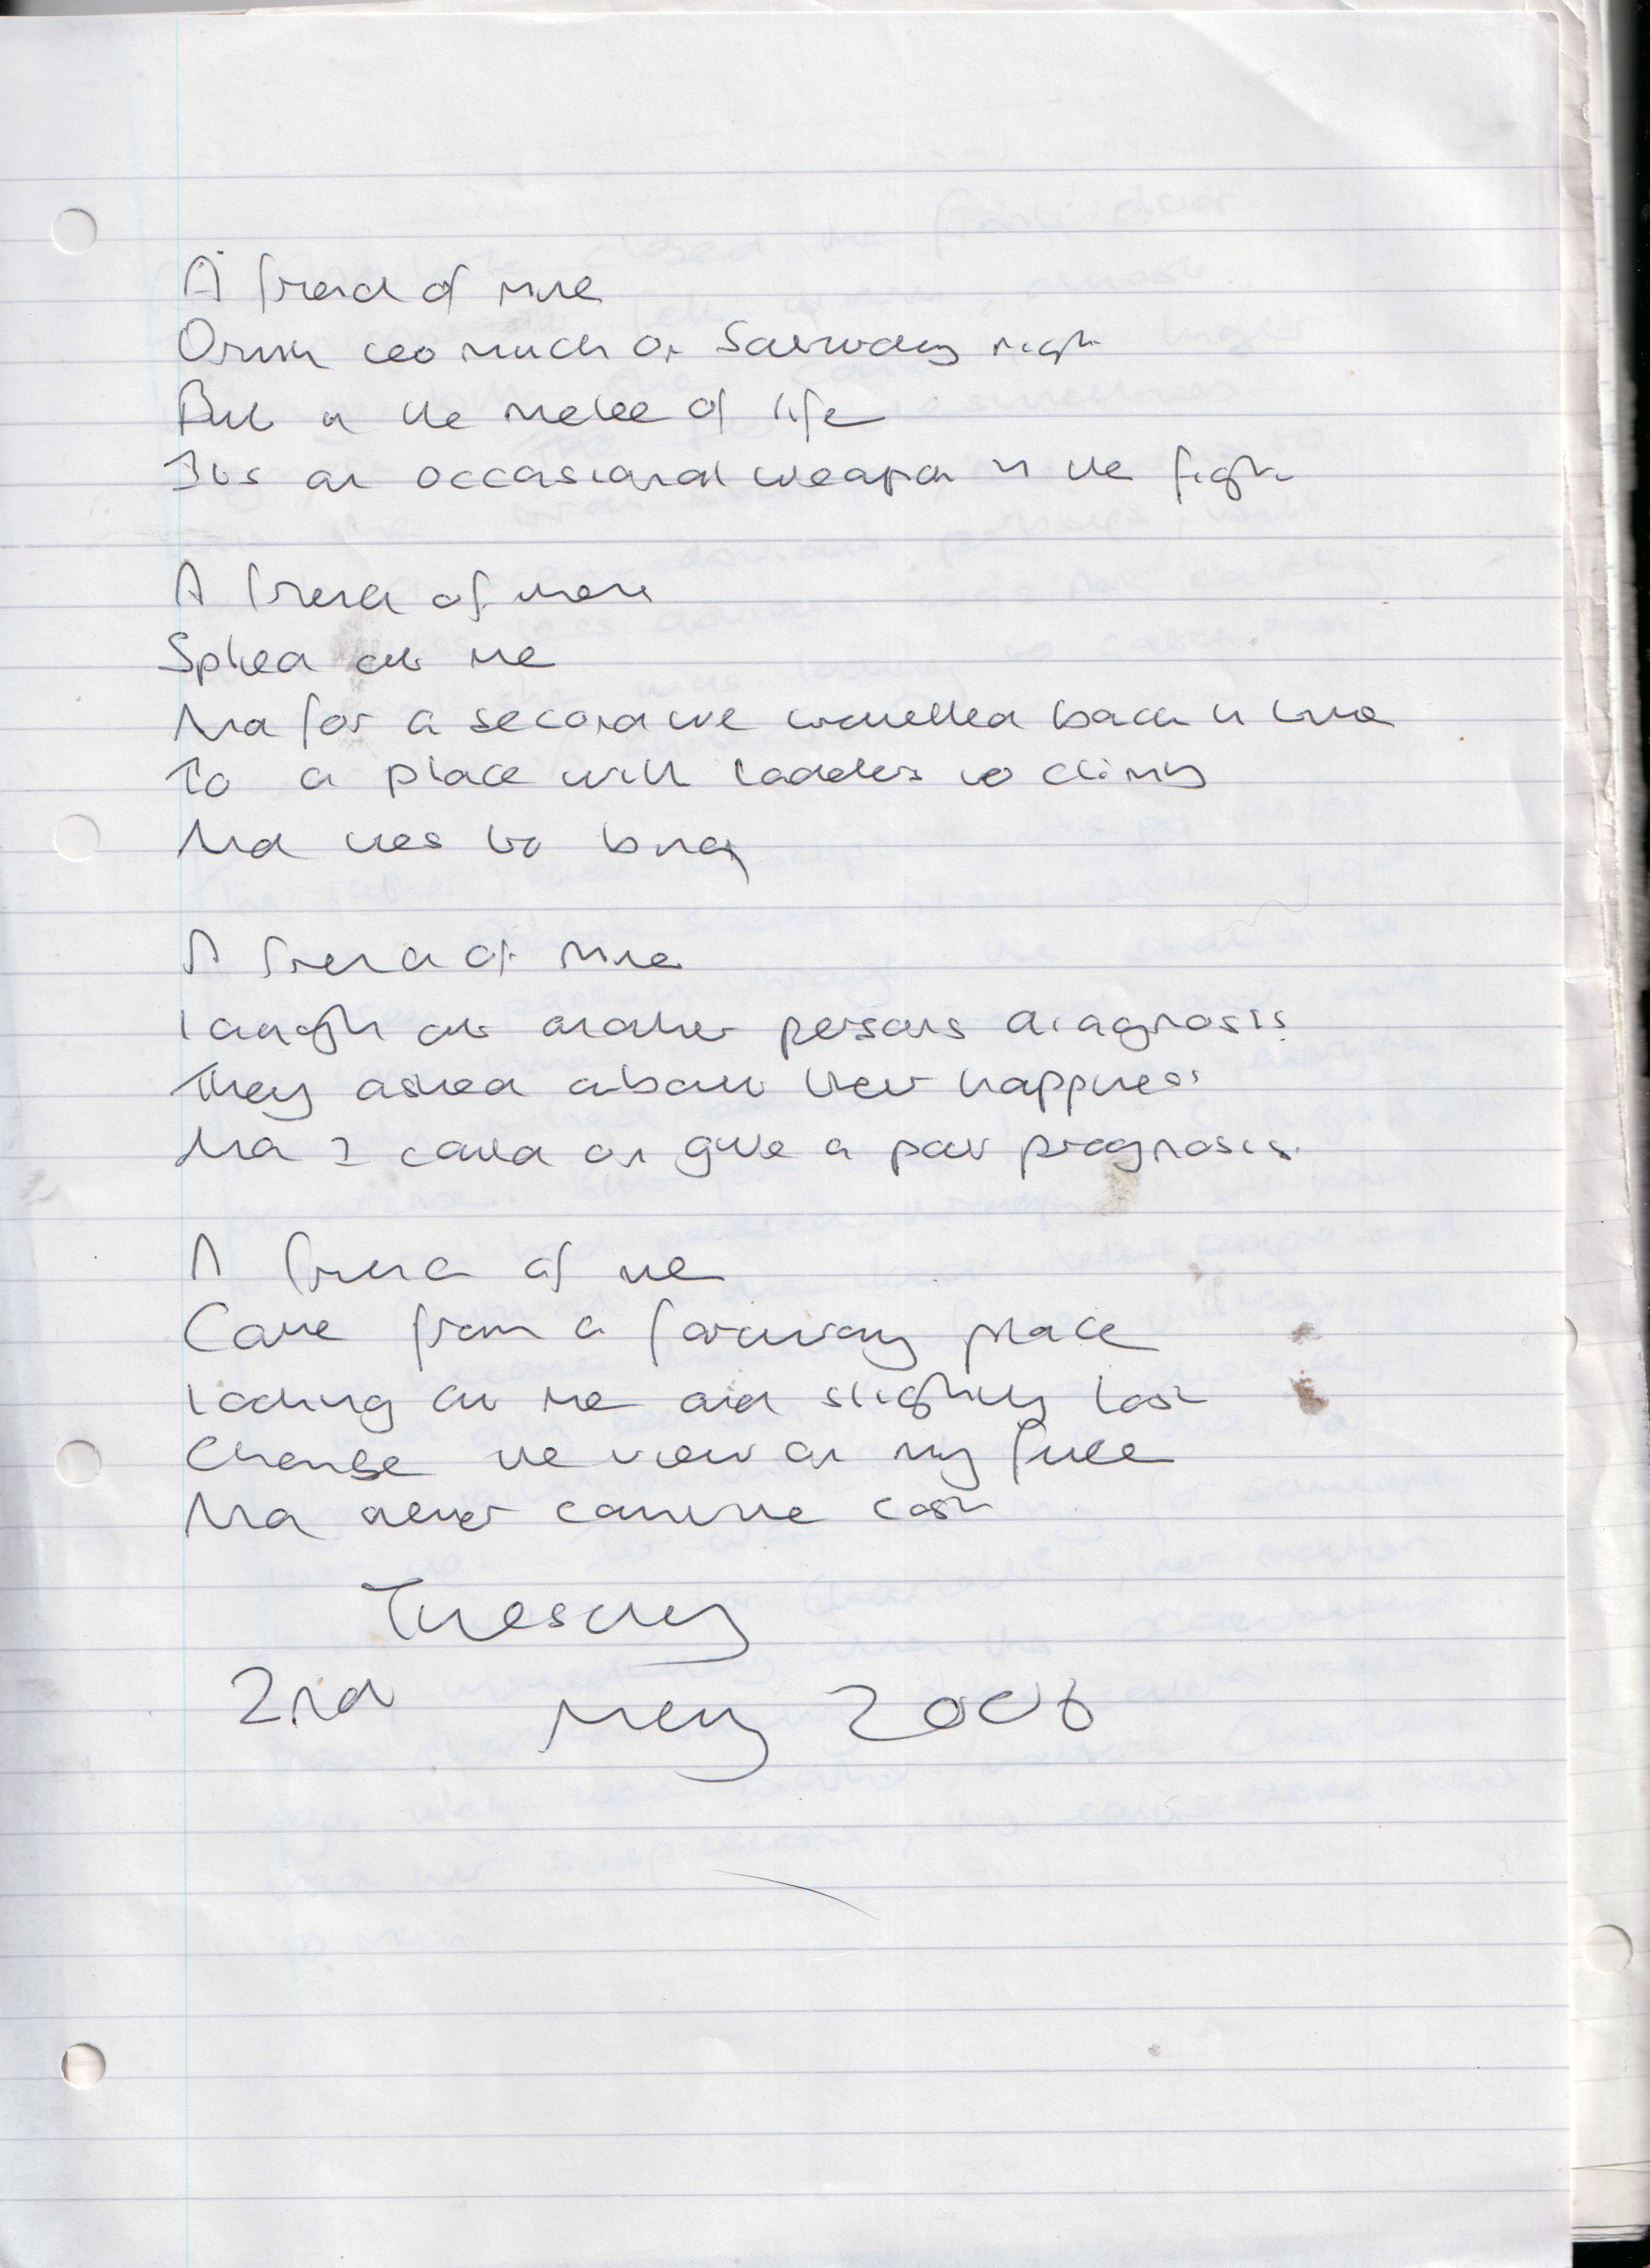 A friend of mine
Drink too much on Saturday night
But in the melee of life
Its an occasional weapon in the fight
A friend of mine
Smiled at me
And for a second we travelled back in time
To a place with ladders to climb
And ties to bring
A friend of mine
laugh at another persons diagnosis
They asked about their happiness
And I could on give a poor prognosis.
A friend of me
Came from a faraway place
looking at me and slightly lost
Change the view on my free
And never the cost
Tuesday
2nd May 2006